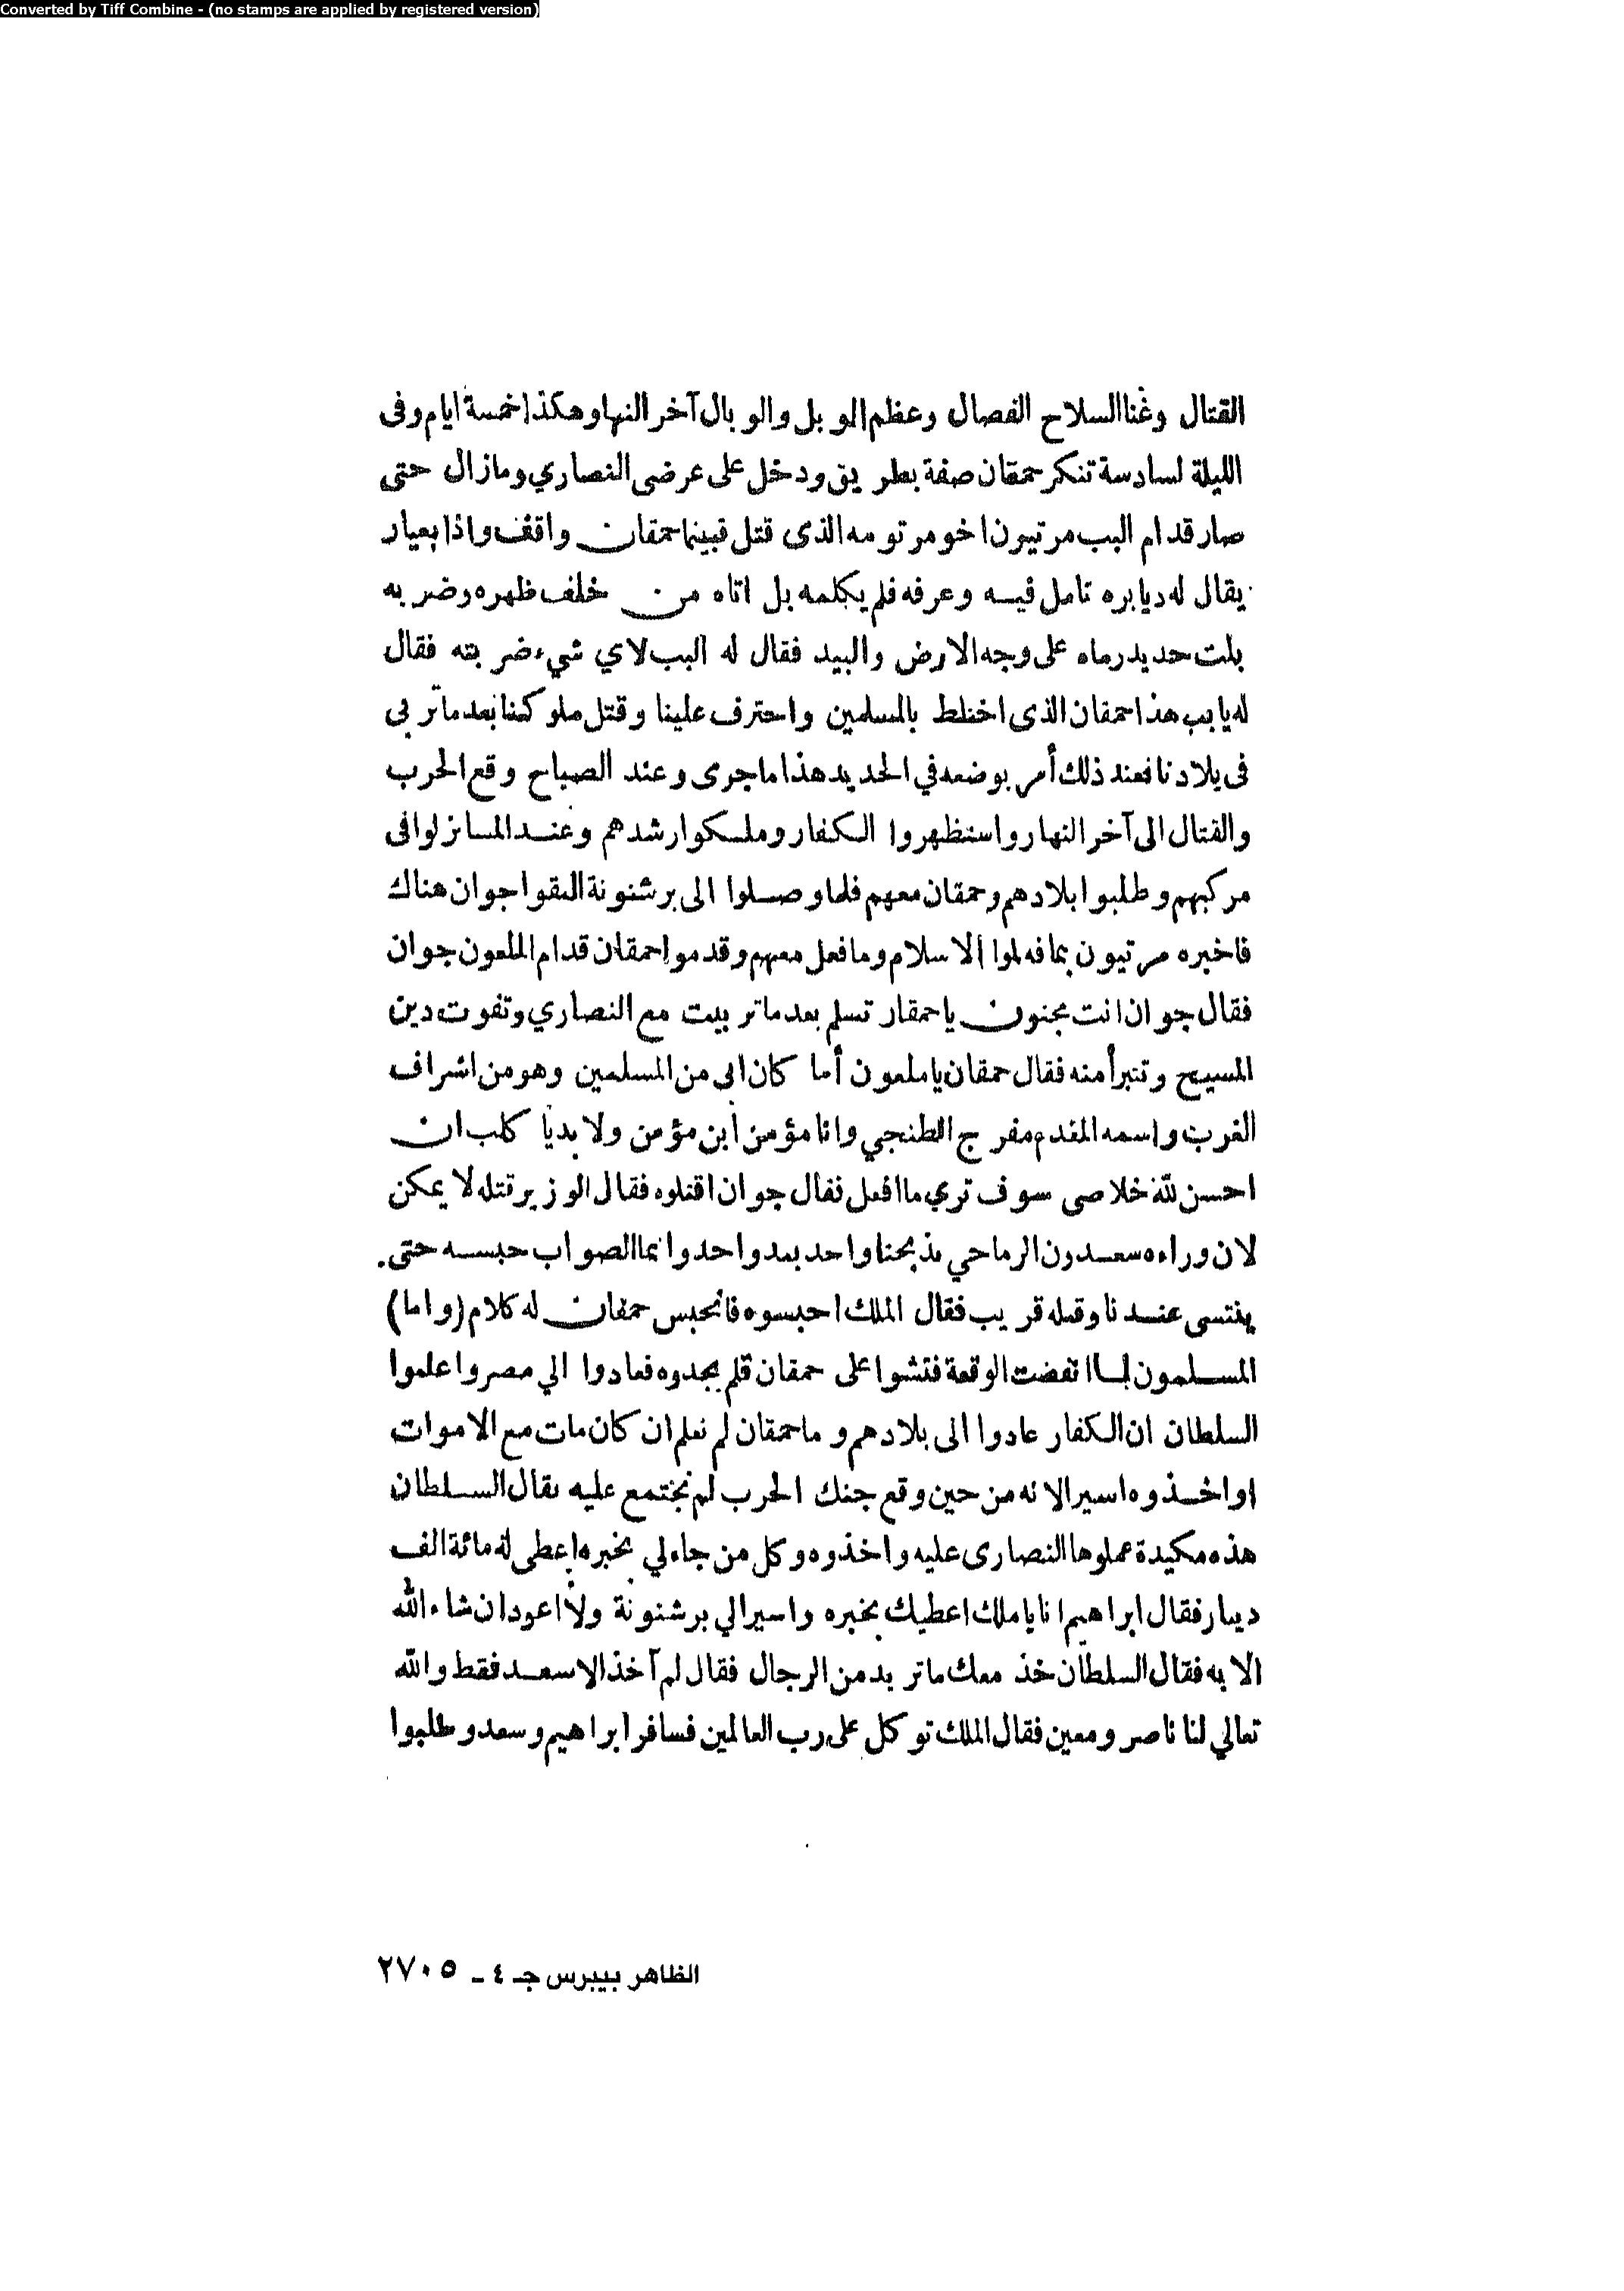 Converted by Tiff Combine - (no stamps are applied by registered version)
القتال وغنا السلاح الفصال وعظم الوبل والوبال آخر النهاو هكذا خمسة ايام وفى
الليلة لسادسة تنكر حمقان صفة بطريق ودخل على عرضى النصاري ومازال حتى
صار قدام البب مرتيرن اخو مرتومه الذى قتل قبينما حمقان واقف واذا بعيار
يقال له ديابره تامل فيه وعرفه فلم يكلمه بل اتاه من خلف ظهره وضربه
بلت حديد رماه على وجه الارض والبيد فقال له البب لاي شيء ضربته فقال
له يابب هذا حمقان الذى اختلط بالمسلمين واحترف علينا وقتل ملوكنا بعد ماتربي
فى بلادنا فعند ذلك أمر بوضعه في الحديد هذا ماجرى وعند الصباح وقع الحرب
والقتال الى آخر النهار واستظهروا الكفار وملكوا رشدهم وعند المسا نزلوا فى
مركبهم وطلبوا بلادهم وحمقان معهم فلما وصلوا الى برشنونة التقوا جوان هناك
فاخبره مرتيون بما فعلوا الاسلام وما فعل معهم وقدموا حمقان قدام الملعون جوان
فقال جوان انت مجنون ياحمقار تسلم بعد ماتربيت مع النصاري وتفوت دين
المسيح وتتبرأ منه فقال حمقان ياملعون أما كان ابى من المسلمين وهو من اشراف
الغرب واسمه المقدم مفرج الطنجي وانا مؤمن أبن مؤمن ولا بديا كلب ان
احسن لله خلاصى سوف تري ما افعل نقال جوان اقتلوه فقال الوزير قتله لا يمكن
لان وراءه سعدون الرماحي يذبحنا واحد بعد واحد وانما الصواب حبسه حتى
ينتسى عندنا وقتله قريب فقال الملك احبسوه فانحبس حمقان له كلام (واما)
المسلمون لما انفضت الوقعة فتشوا على حمقان قلم يجدوه فعادوا الي مصر واعلموا
السلطان ان الكفار عادوا الى بلادهم وما حمقان لم نعلم ان كان مات مع الاموات
او اخذوه اسير الانه من حين وقع جنك الحرب لم نجتمع عليه نقال السلطان
هذه مكيدة عملوها النصارى عليه واخذوه وكل من جاء لي بخبره اعطى له مائة الف
دينار فقال ابراهيم انا ياملك اعطيك بخبره واسير الي برشنونة ولا اعود ان شاء الله
الا به فقال السلطان خذ معك ماتريد من الرجال فقال لم آخذ الا سعد فقط والله
تعالي لنا ناصر ومعين فقال الملك توكل على رب العالمين فسافر ابراهيم وسعد وطلبوا
الظاهر بيبرس جـ ٤ ـ ٢٧٠٥